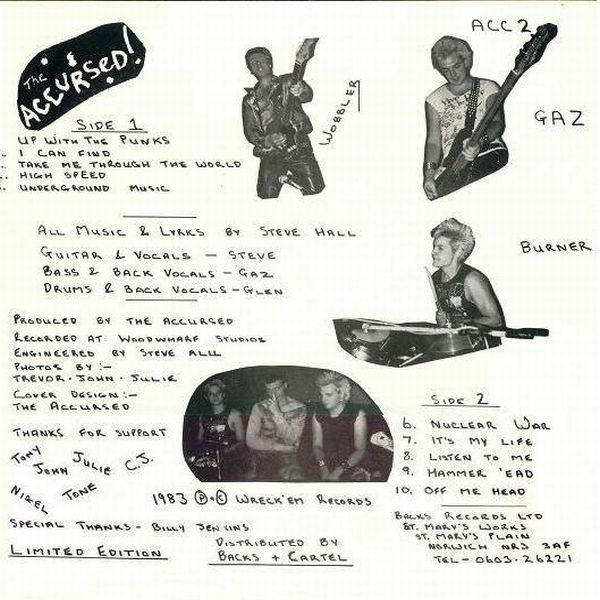 THE
ACCURSED!
SIDE 1
UP WITH THE PUNKS
I CAN FIND
TAKE ME THROUGH THE WORLD
HIGH SPEED
UNDERGROUND MUSIC
WOBBLER
ACC 2
GAZ
BURNER
ALL MUSIC & LYRICS BY STEVE HALL
GUITAR & VOCALS – STEVE
BASS & BACK VOCALS – GAZ
DRUMS & BACK VOCALS – GLEN
PRODUCED BY THE ACCURSED
RECORDED AT WOODWHARF STUDIOS
ENGINEERED BY STEVE ALLL
PHOTOS BY :-
TREVOR · JOHN · JULIE
COVER DESIGN:-
THE ACCURSED
THANKS FOR SUPPORT
TONY JOHN JULIE C.J.
NIGEL TONE
SPECIAL THANKS – BILLY JENKINS
LIMITED EDITION
1983 Ⓟ + © WRECK'EM RECORDS
DISTRIBUTED BY
BACKS + CARTEL
SIDE 2
6. NUCLEAR WAR
7. IT'S MY LIFE
8. LISTEN TO ME
9. HAMMER 'EAD
10. OFF ME HEAD
BACKS RECORDS LTD
ST. MARY'S WORKS
ST. MARY'S PLAIN
NORWICH NR3 3AF
TEL – 0603·26221